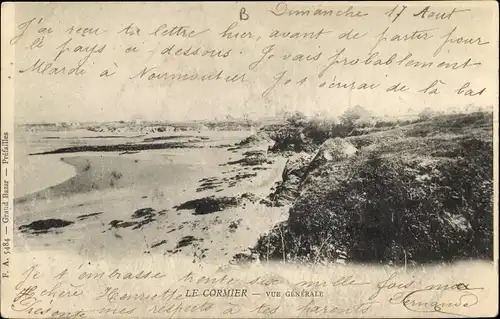 B
Dimanche 17 Août
J'ai reçu ta lettre hier, avant de partir pour
le pays ci dessous. Je vais probablement
Mardi à Noirmoutier
Je t'écrirai de là bas
F. A. 5484 — Grand Bazar — Préfailles
Je t'embrasse mille fois ma
chère Henriette
LE CORMIER — VUE GÉNÉRALE
Fernande
Présente mes respects à tes parents